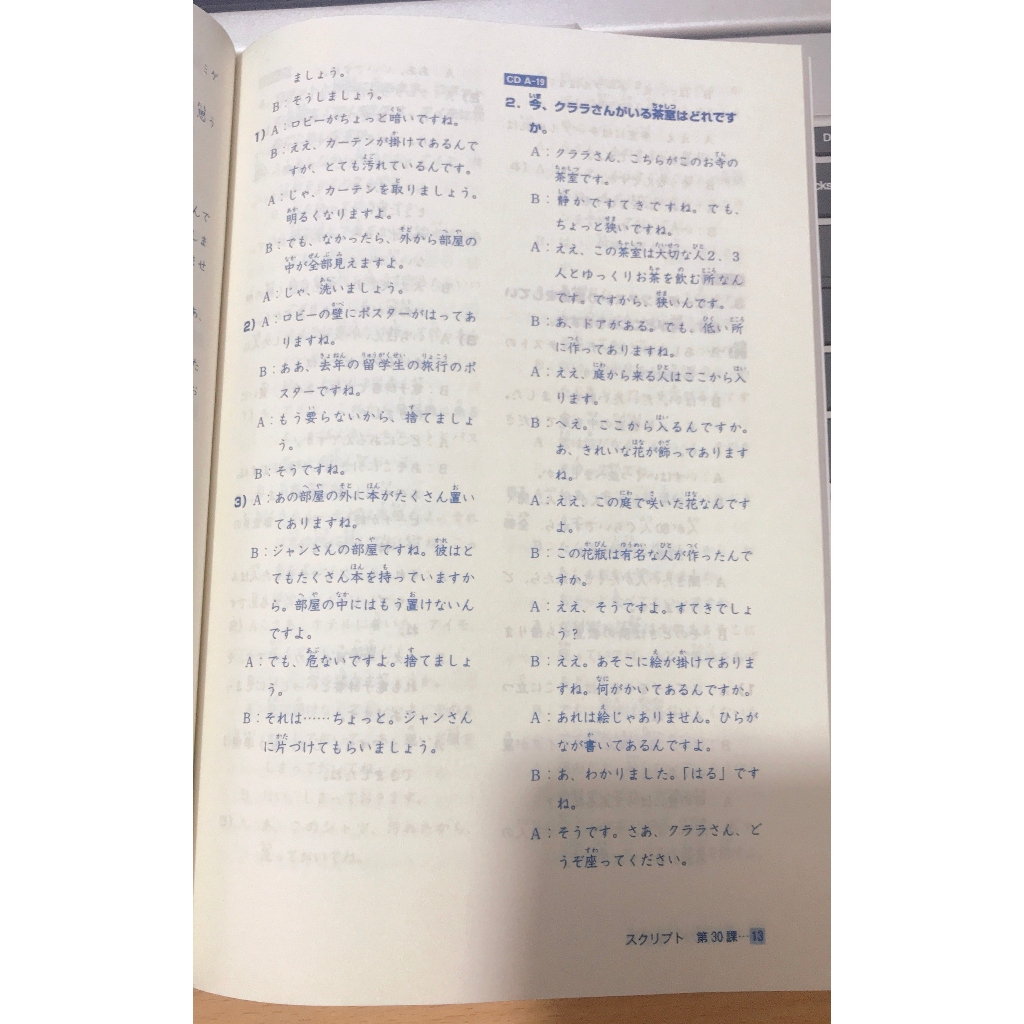 ましょう。
B：そうしましょう。
1) A：ロビーがちょっと暗いですね。
B：ええ、カーテンが掛けてあるんで
すが、とても汚れているんです。
A：じゃ、カーテンを取りましょう。
明るくなりますよ。
B：でも、なかったら、外から部屋の
中が全部見えますよ。
A：じゃ、洗いましょう。
2) A：ロビーの壁にポスターがはってあ
りますね。
B：ああ、去年の留学生の旅行のポ
スターですね。
A：もう要らないから、捨てましょ
う。
B：そうですね。
3) A：あの部屋の外に本がたくさん置い
てありますね。
B：ジャンさんの部屋ですね。彼はと
てもたくさん本を持っていますか
ら。部屋の中にはもう置けないん
ですよ。
A：でも、危ないですよ。捨てましょ
う。
B：それは……ちょっと。ジャンさん
に片づけてもらいましょう。
CD A-19
2. 今、クララさんがいる茶室はどれです
か。
A：クララさん、こちらがこのお寺の
茶室です。
B：静かですてきですね。でも、
ちょっと狭いですね。
A：ええ、この茶室は大切な人2、3
人とゆっくりお茶を飲む所なん
です。ですから、狭いんです。
B：あ、ドアがある。でも、低い所
に作ってありますね。
A：ええ、庭から来る人はここから入
ります。
B：へえ。ここから入るんですか。
あ、きれいな花が飾ってあります
ね。
A：ええ、この庭で咲いた花なんです
よ。
B：この花瓶は有名な人が作ったんで
すか。
A：ええ、そうですよ。すてきでしょ
う？
B：ええ。あそこに絵が掛けてありま
すね。何がかいてあるんですか。
A：あれは絵じゃありません。ひらが
なが書いてあるんですよ。
B：あ、わかりました。「はる」です
ね。
A：そうです。さあ、クララさん、ど
うぞ座ってください。
スクリプト 第30課…13